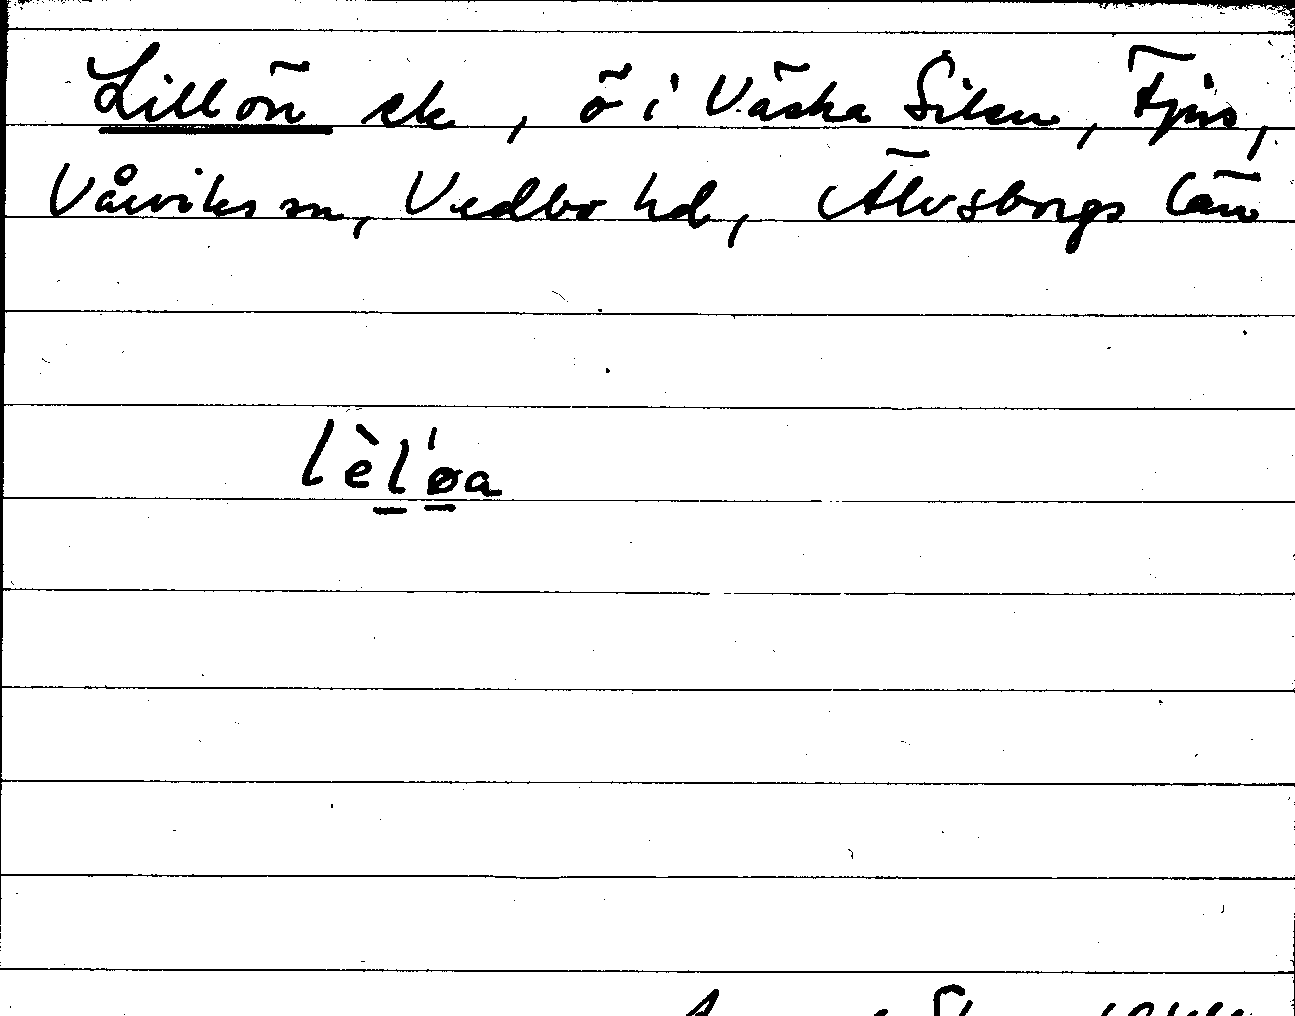 Lillön ek, ö i Västra Silen, Fjös,
Vårviks sn, Vedbo hd, Älvsborgs län
lèl'øa